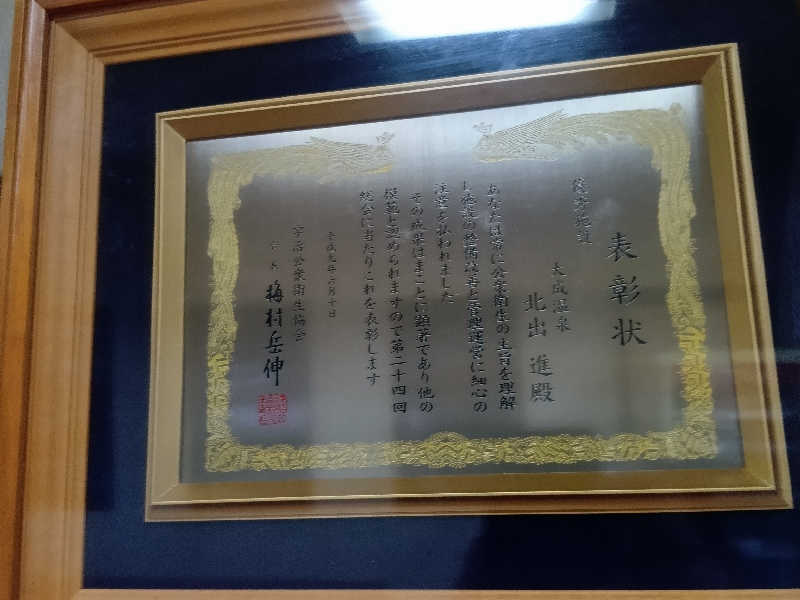 表彰状
優秀施設
大成温泉
北出 進殿
あなたは常に公衆衛生の主旨を理解
し施設の整備改善と管理運営に細心の
注意を払われました
その成果はまことに顕著であり他の
模範と認められますので第二十四回
総会に当たりこれを表彰します
平成九年六月十日
宇治公衆衛生協会
会長 梅村岳伸